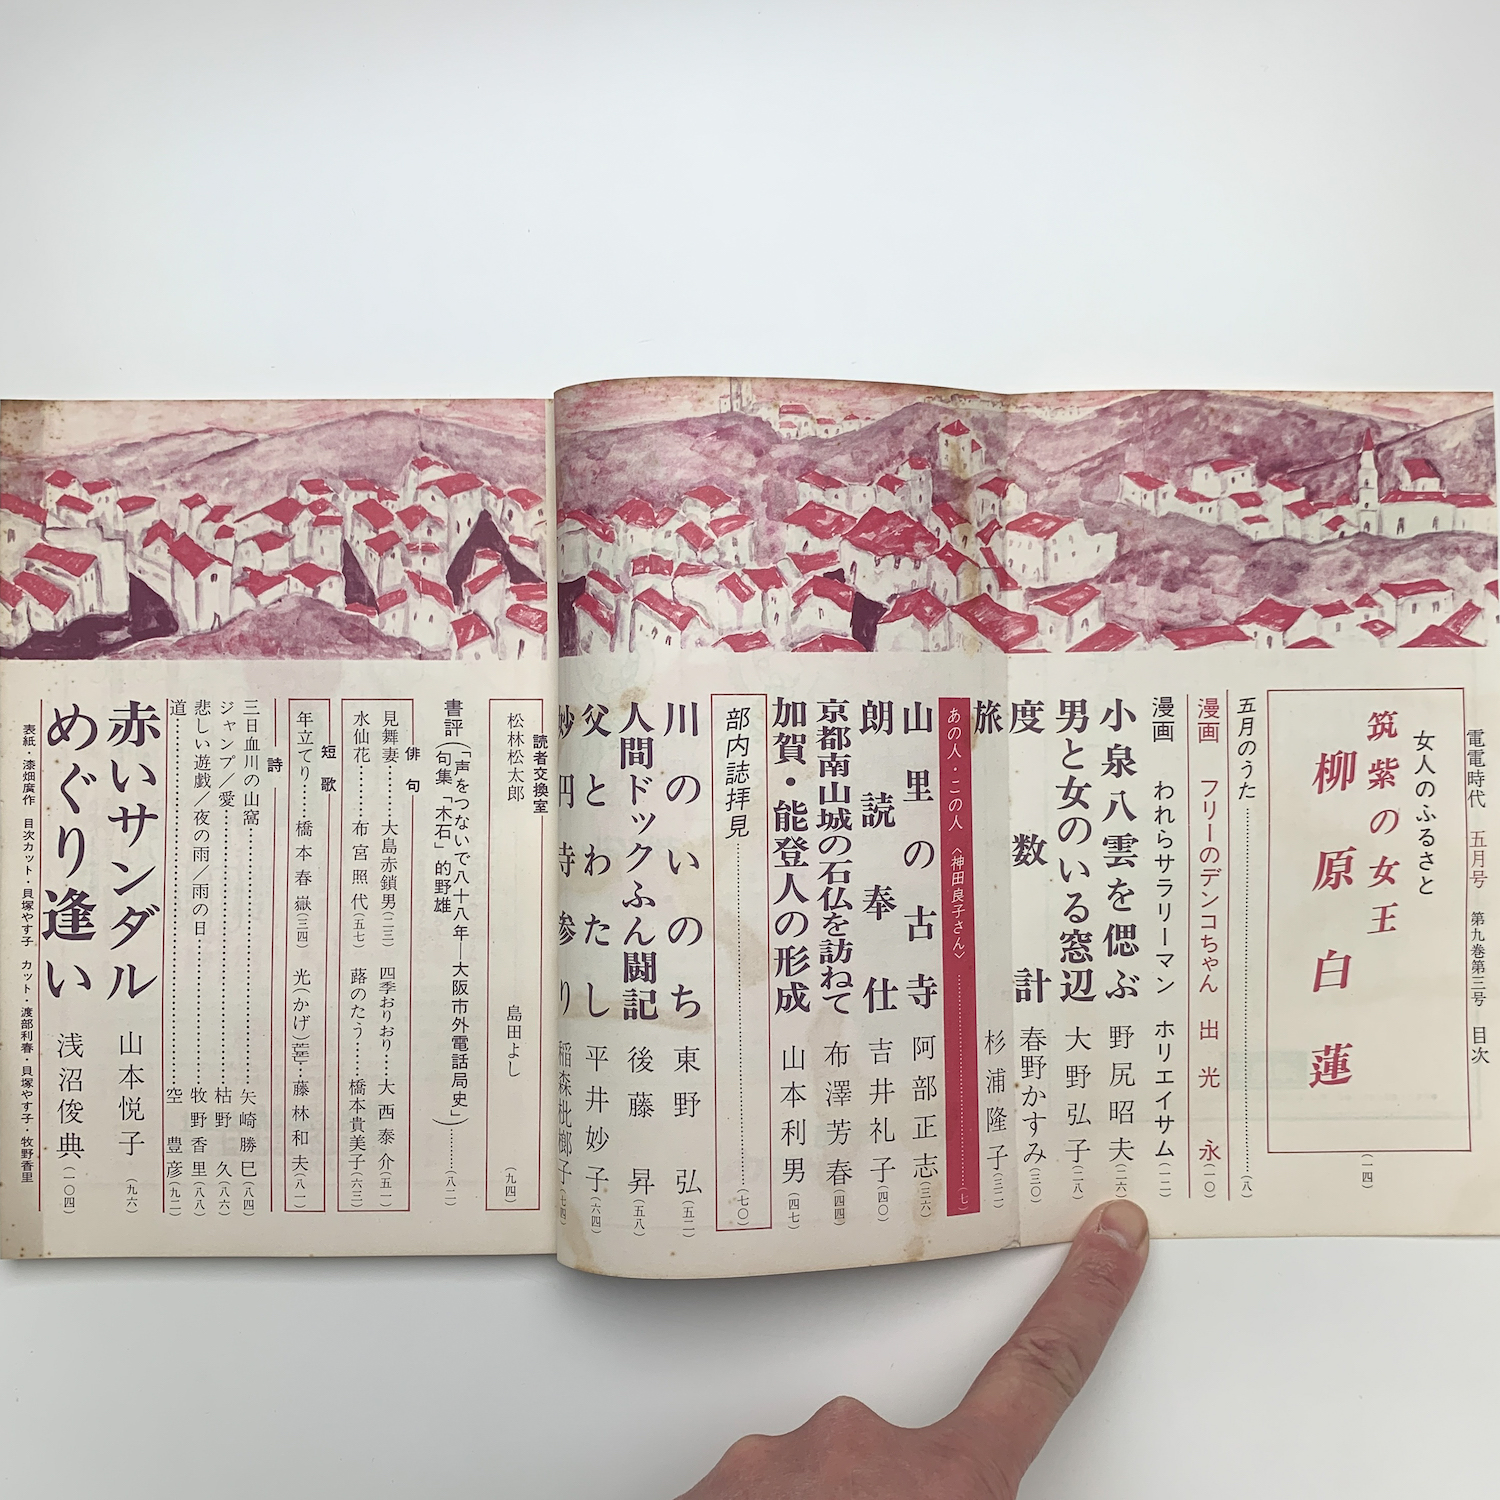 電電時代 五月号 第九巻第三号 目次
女人のふるさと
筑紫の女王
柳原白蓮
(一四)
五月のうた (八)
漫画 フリーのデンコちゃん 出光永 (一〇)
漫画 われらサラリーマン ホリエイサム (一二)
小泉八雲を偲ぶ 野尻昭夫 (二六)
男と女のいる窓辺 大野弘子 (二八)
度数計 春野かすみ (三〇)
旅 杉浦隆子 (三二)
あの人・この人〈神田良子さん〉 (七)
山里の古寺 阿部正志 (三六)
朗読奉仕 吉井礼子 (四〇)
京都南山城の石仏を訪ねて 布澤芳春 (四四)
加賀・能登人の形成 山本利男 (四七)
部内誌拝見 (七〇)
川のいのち 東野弘 (五二)
人間ドックふん闘記 後藤昇 (五八)
父とわたし 平井妙子 (六四)
妙円寺参り 稲森枇榔子 (七四)
読者交換室
松林松太郎 島田よし (九四)
書評(「声をつないで八十八年―大阪市外電話局史」
句集「木石」的野雄) (八二)
俳句
見舞妻 大島赤鎖男 (三三) 四季おりおり 大西泰介 (五一)
水仙花 布宮照代 (五七) 蕗のたう 橋本貴美子 (六三)
短歌
年立てり 橋本春嶽 (三四) 光(かげ) 藤林和夫 (八一)
詩
三日血川の山窩 矢崎勝巳 (八四)
ジャンプ/愛 枯野久 (八六)
悲しい遊戯/夜の雨/雨の日 牧野香里 (八八)
道 空豊彦 (九二)
赤いサンダル 山本悦子 (九六)
めぐり逢い 浅沼俊典 (一〇四)
表紙・漆畑廣作 目次カット・貝塚やす子 カット・渡部利春・貝塚やす子・牧野香里